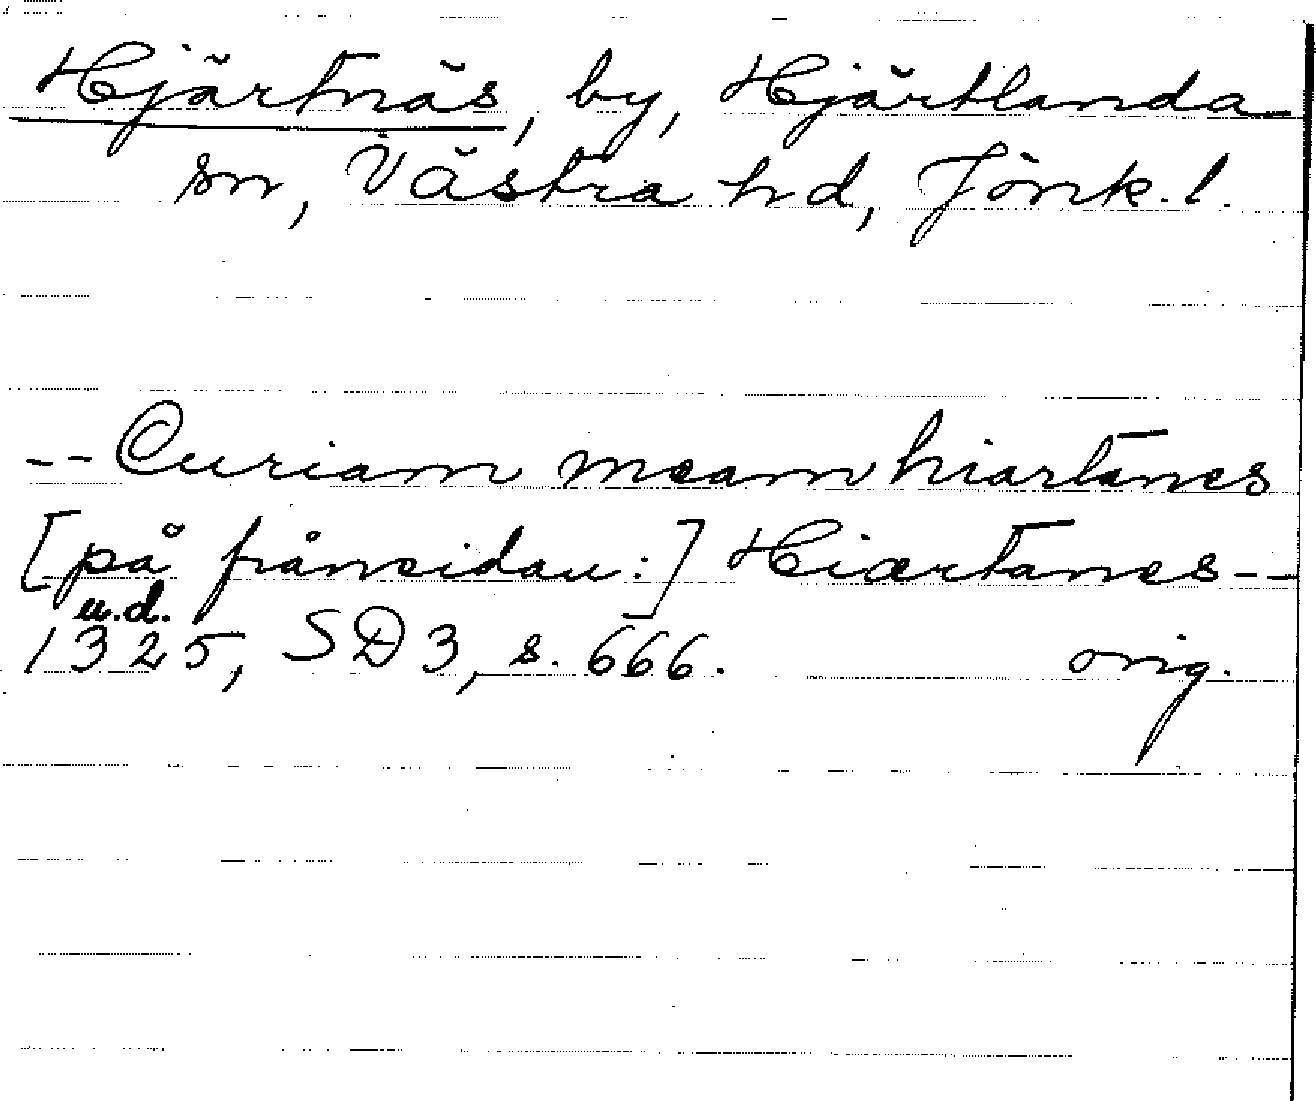 Hjärtnäs, by, Hjärtlanda
sn, Västra hd, Jönk. l.
-- Curiam meam hiartanes
[på frånsidan:] Hiærtanes --
u.d.
1325, SD 3, s. 666. orig.